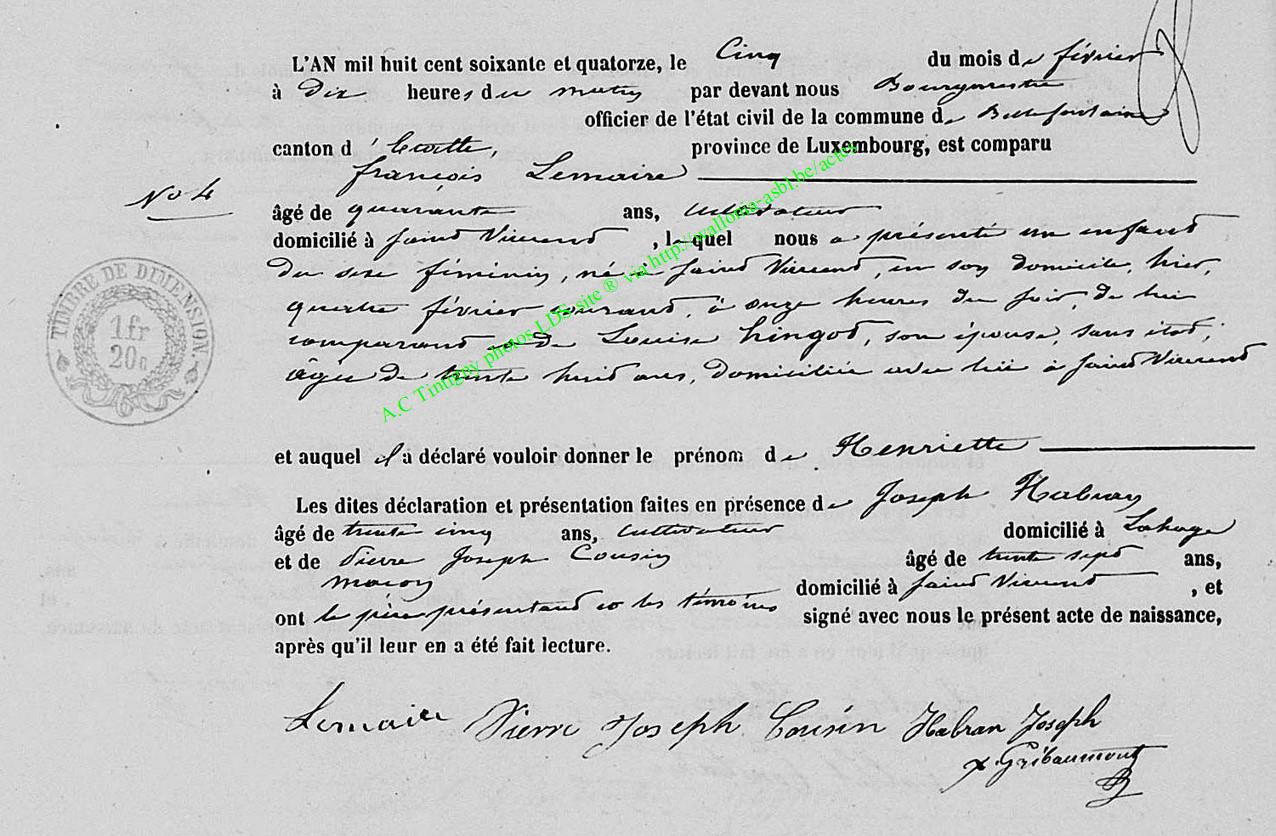 L'AN mil huit cent soixante et quatorze, le Cinq du mois de février
à Dix heures du matin par devant nous Bourgmestre
officier de l'état civil de la commune de Bellefontaine
canton d'Etalle, province de Luxembourg, est comparu
françois Lemaire
No 4
âgé de quarante ans, cultivateur
domicilié à Saint Vincent, lequel nous a présenté un enfant
du sexe féminin, né à Saint Vincent, en son domicile, hier,
quatre février courant, à onze heures du soir, de lui
comparant et de Louise hingot, son épouse, sans état,
âgée de trente huit ans, domiciliée avec lui à Saint Vincent
TIMBRE DE DIMENSION.
1 fr
20c
6
A.C Tintigny photos LDS site ® via http://wallonia-asbl.be/actes
et auquel il a déclaré vouloir donner le prénom de Henriette
Les dites déclaration et présentation faites en présence de Joseph Habran
âgé de trente cinq ans, cultivateur domicilié à Lahage
et de Pierre Joseph Cousin âgé de trente sept ans,
maçon domicilié à Saint Vincent, et
ont le père présentant et les témoins signé avec nous le présent acte de naissance,
après qu'il leur en a été fait lecture.
Lemaire Pierre Joseph Cousin Habran Joseph
x Gribaumont